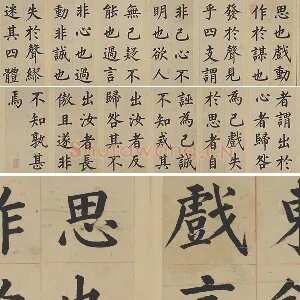 思也戲動
作於謀也
發於聲見
乎四支謂
非己心不
明也欲人
無己疑不
能也過言
非心也過
動非誠也
失於聲繆
迷其四體
者謂出於
心者歸咎
為己戲失
於思者自
誣為己誠
不知戒其
出汝者反
歸咎其不
出汝者長
傲且遂非
不知孰甚
焉
東
戲言
思也
作